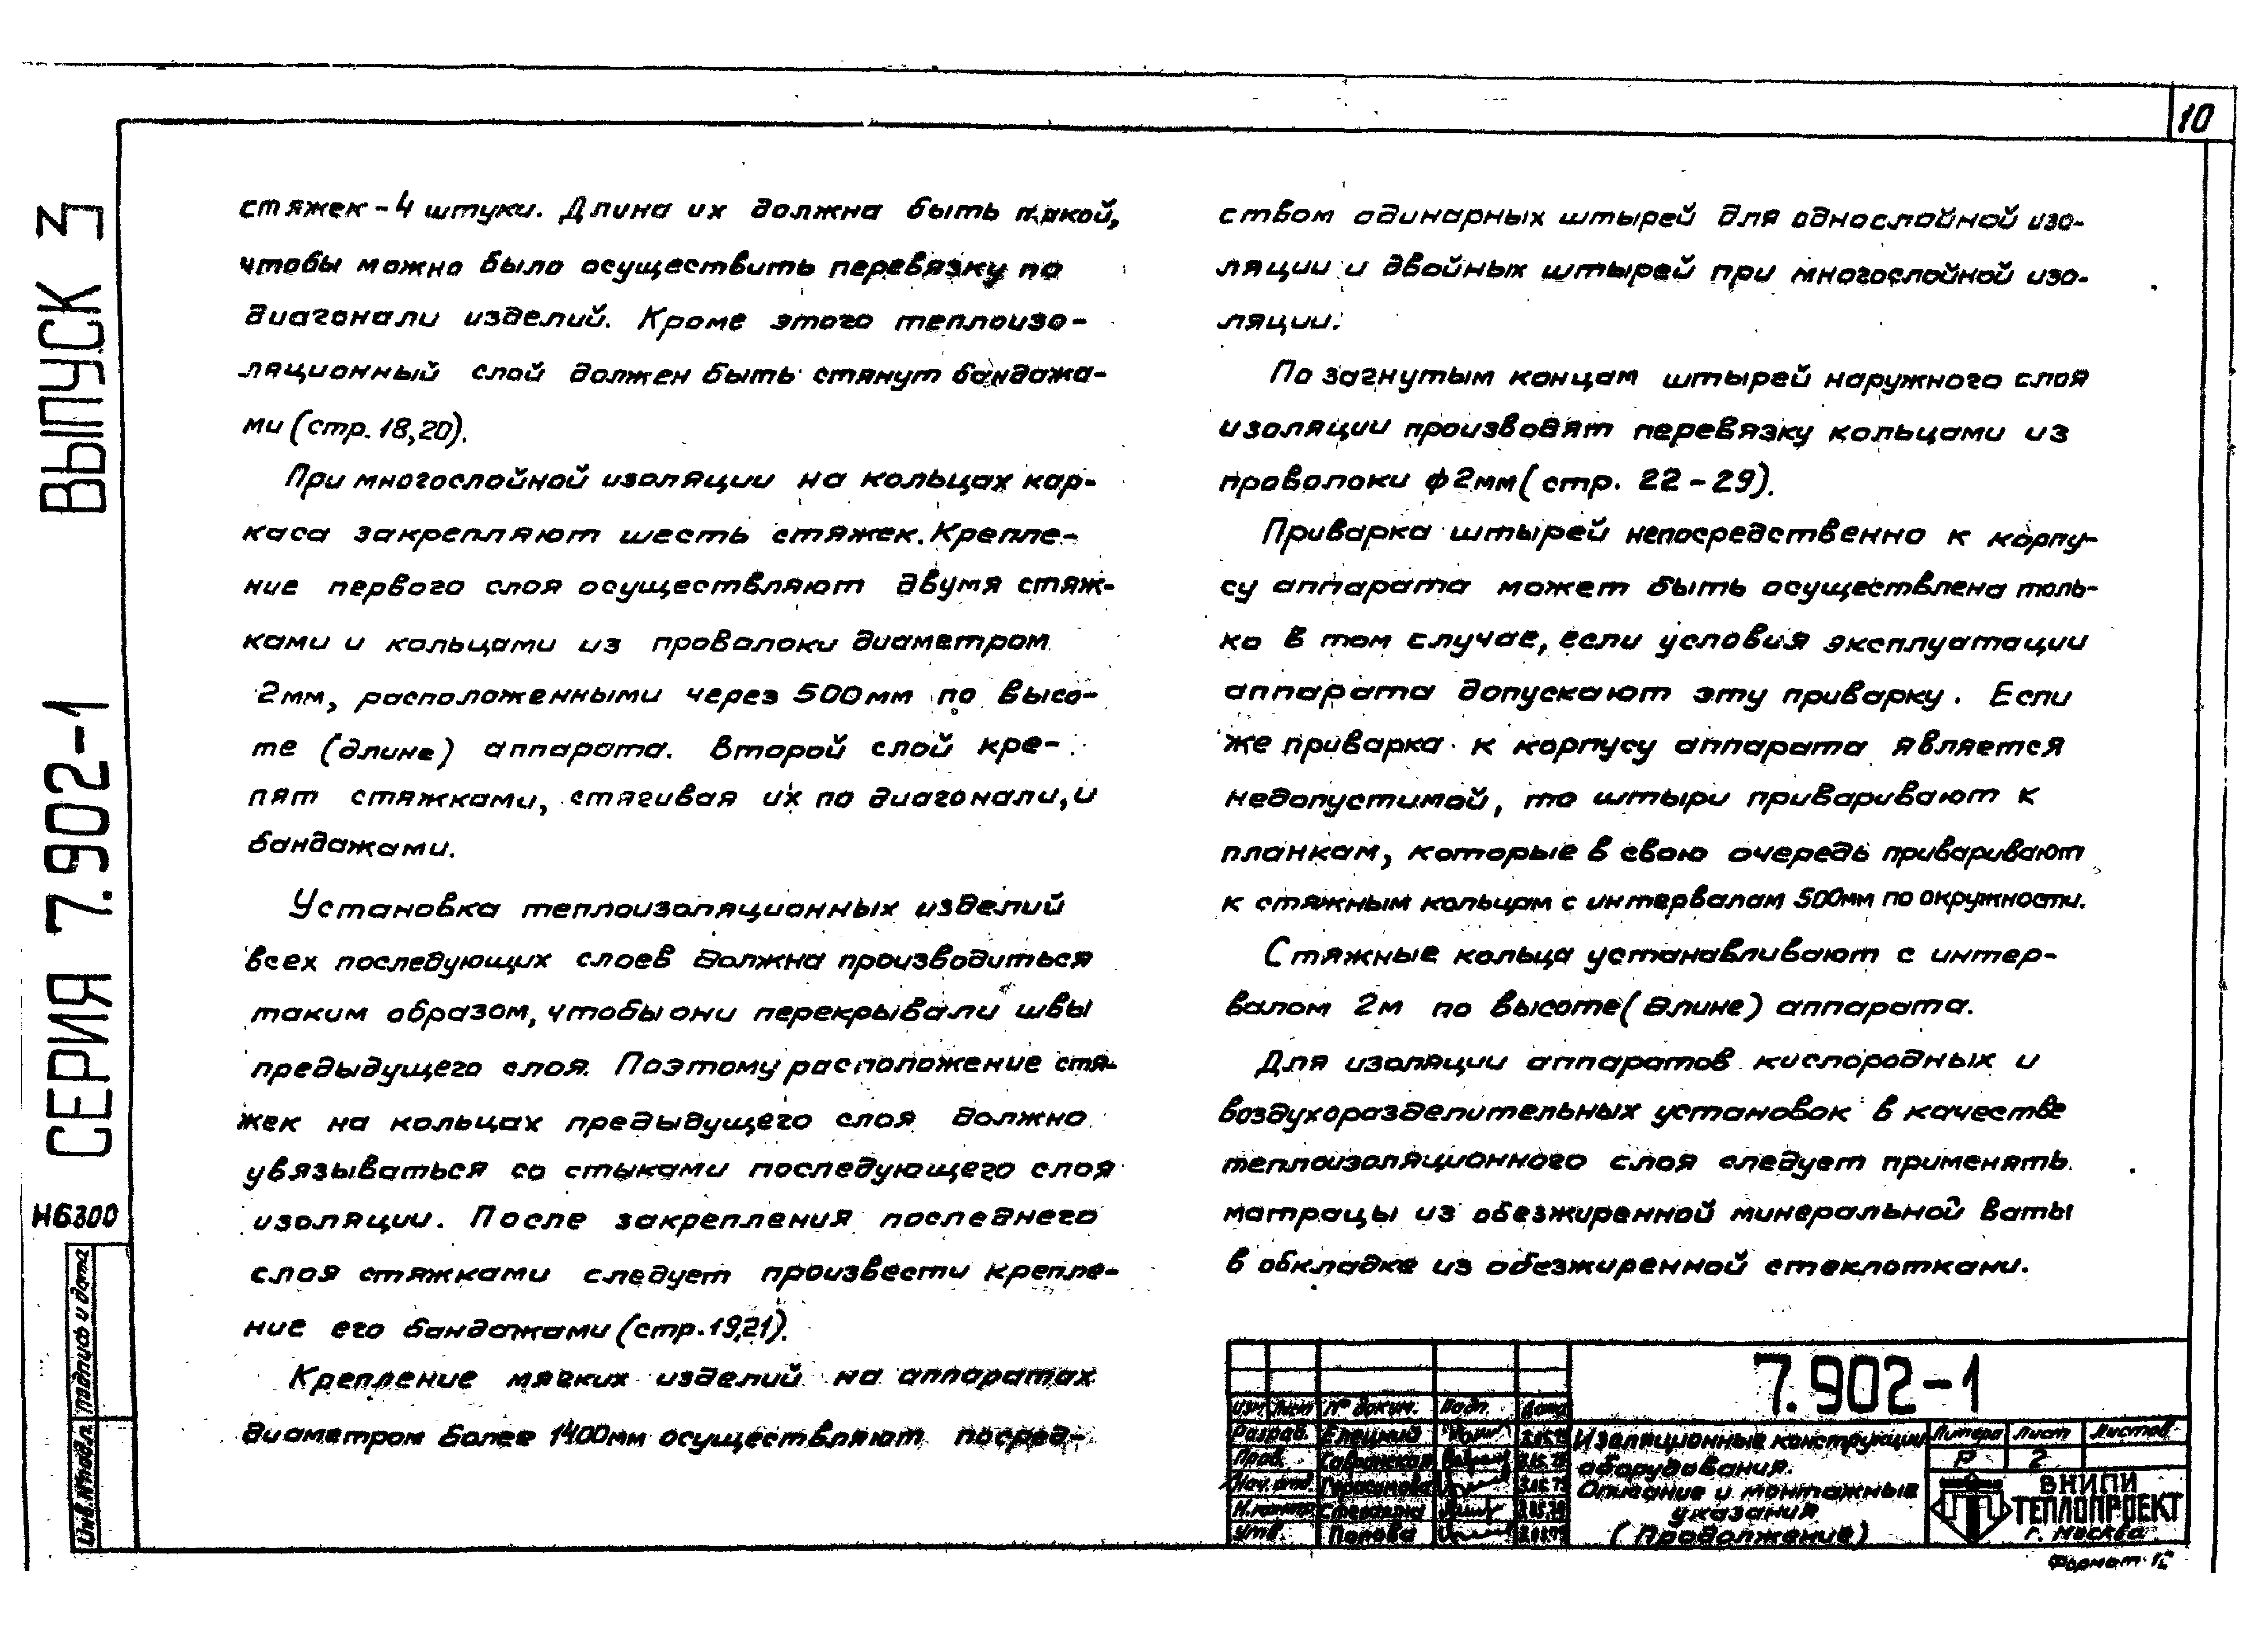 10
СЕРИЯ 7.902-1 ВЫПУСК 3
стяжек-4 штуки. Длина их должна быть такой,
чтобы можно было осуществить перевязку по
диагонали изделий. Кроме этого теплоизо-
ляционный слой должен быть стянут бандажа-
ми (стр. 18,20).
При многослойной изоляции на кольцах кар-
каса закрепляют шесть стяжек. Крепле-
ние первого слоя осуществляют двумя стяж-
ками и кольцами из проволоки диаметром
2мм, расположенными через 500мм по высо-
те (длине) аппарата. Второй слой кре-
пят стяжками, стягивая их по диагонали, и
бандажами.
Установка теплоизоляционных изделий
всех последующих слоев должна производиться
таким образом, чтобы они перекрывали швы
предыдущего слоя. Поэтому расположение стя-
жек на кольцах предыдущего слоя должно
увязываться со стыками последующего слоя
изоляции. После закрепления последнего
слоя стяжками следует произвести крепле-
ние его бандажами (стр. 19,21).
Крепление мягких изделий на аппаратах
диаметром более 1400мм осуществляют посред-
ством одинарных штырей для однослойной изо-
ляции и двойных штырей при многослойной изо-
ляции.
По загнутым концам штырей наружного слоя
изоляции производят перевязку кольцами из
проволоки ф2мм (стр. 22-29).
Приварка штырей непосредственно к корпу-
су аппарата может быть осуществлена толь-
ко в том случае, если условия эксплуатации
аппарата допускают эту приварку. Если
же приварка к корпусу аппарата является
недопустимой, то штыри приваривают к
планкам, которые в свою очередь приваривают
к стяжным кольцам с интервалам 500мм по окружности.
Стяжные кольца устанавливают с интер-
валом 2м по высоте (длине) аппарата.
Для изоляции аппаратов кислородных и
воздухоразделительных установок в качестве
теплоизоляционного слоя следует применять
матрацы из обезжиренной минеральной ваты
в обкладке из обезжиренной стеклоткани.
Н6300
Подпись и дата
Инв.№ подл.
7.902-1
Изм Лист № докум. Подп. Дата
Разраб. Елецкий
Пров.
Нач.отд. Герасимова
Н.контр.
Утв. Попова
Изоляционные конструкции
оборудования.
Описание и монтажные
указания
(Продолжение)
Литера Лист Листов
Р 2
ВНИПИ
ТЕПЛОПРОЕКТ
г. Москва
Формат 12